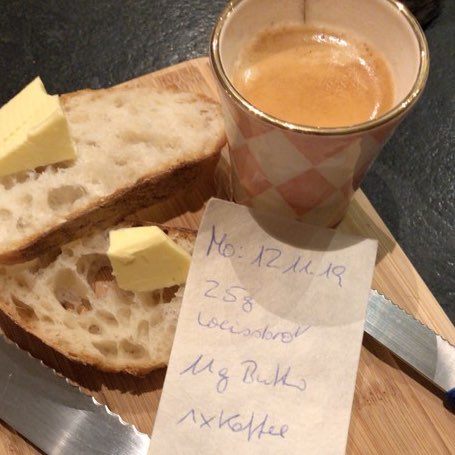 Mo: 12.11.19
25g
Weissbrot
11g Butter
1x Kaffee